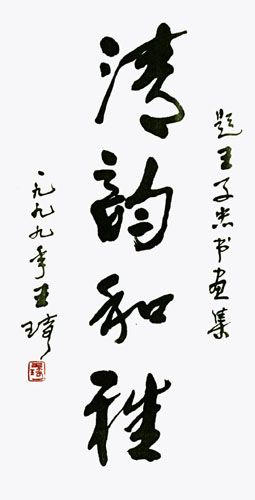 题王子忠书画集
清韵和雅
一九九九年王琦